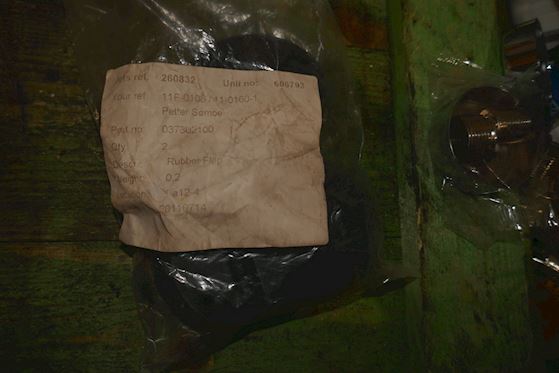 Jets ref. 260832 Unit no: 606793
Your ref 11F-0106741-0160-1
Petter Sømoe
Part no: 037302100
Qty 2
Descr. Rubber Flap
Weight: 0,2
a12-4
20110714